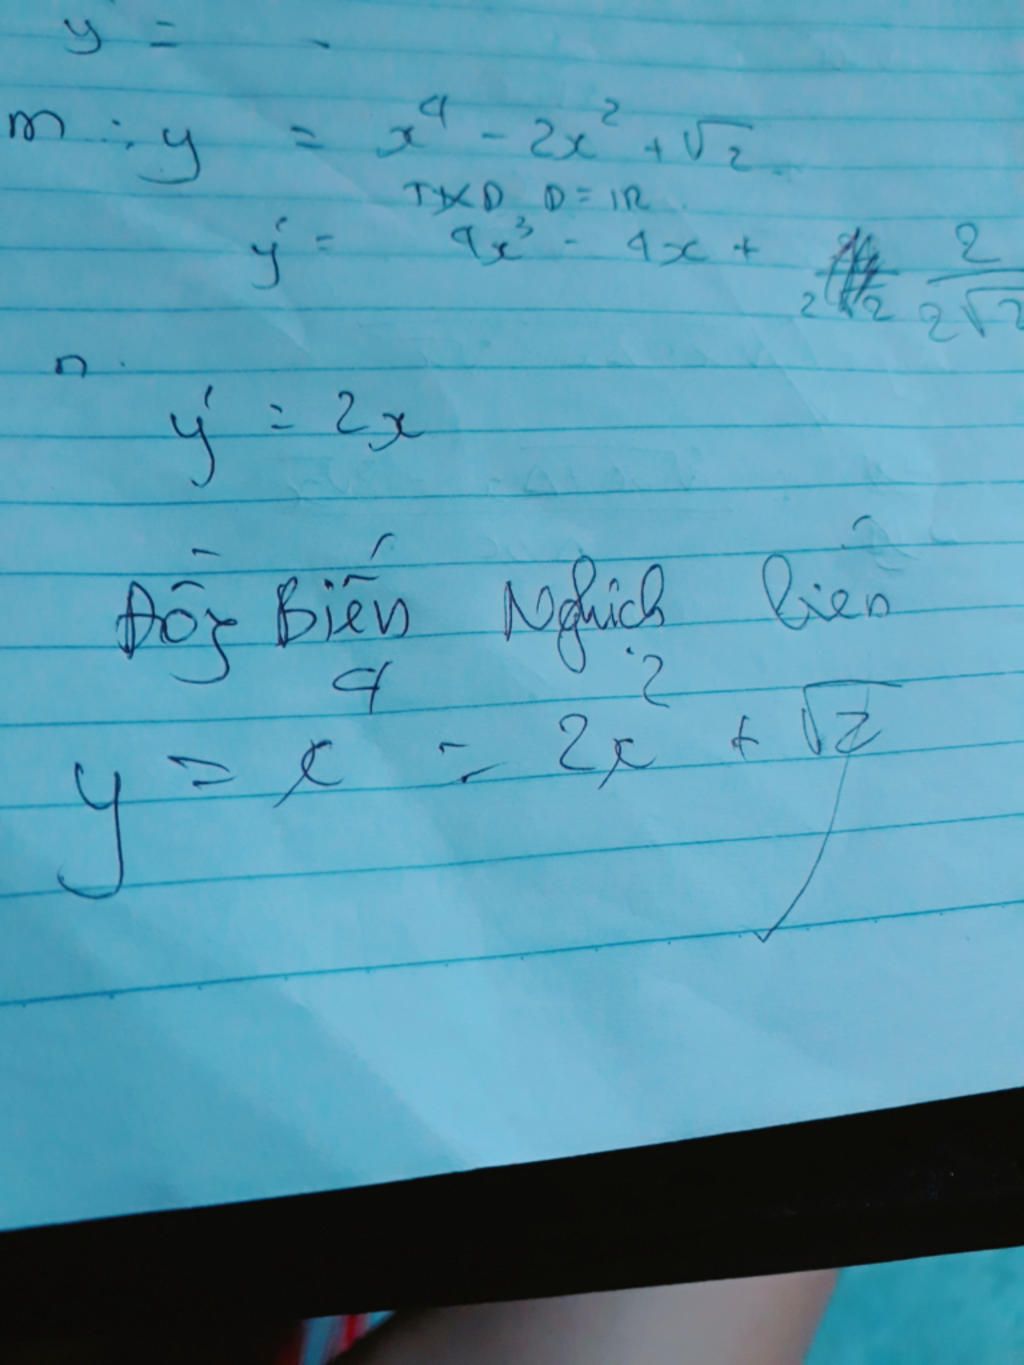 y =
m : y = x⁴ - 2x² + √2
TXD D = IR
y' = 4x³ - 4x + 2/2√2
n.
y' = 2x
Đồng Biến Nghịch biến
y = x⁴ - 2x² + √2